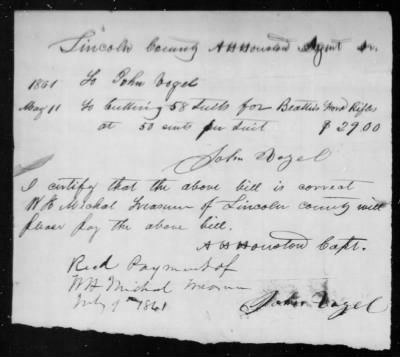 Lincoln County A H Houston Agent Dr.
1861 To John Vogel
May 11 To Cutting 58 Suits for Beatties Ford Rifles
at 50 cents per Suit $29.00
John Vogel
I certify that the above bill is correct
W H Michal Treasurer of Lincoln County will
please pay the above bill.
A H Houston Capt.
Recd Payment of
W H Michal Treasurer
July 9th 1861
John Vogel